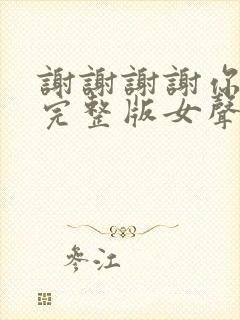 謝謝謝謝你
完整版女聲
參江